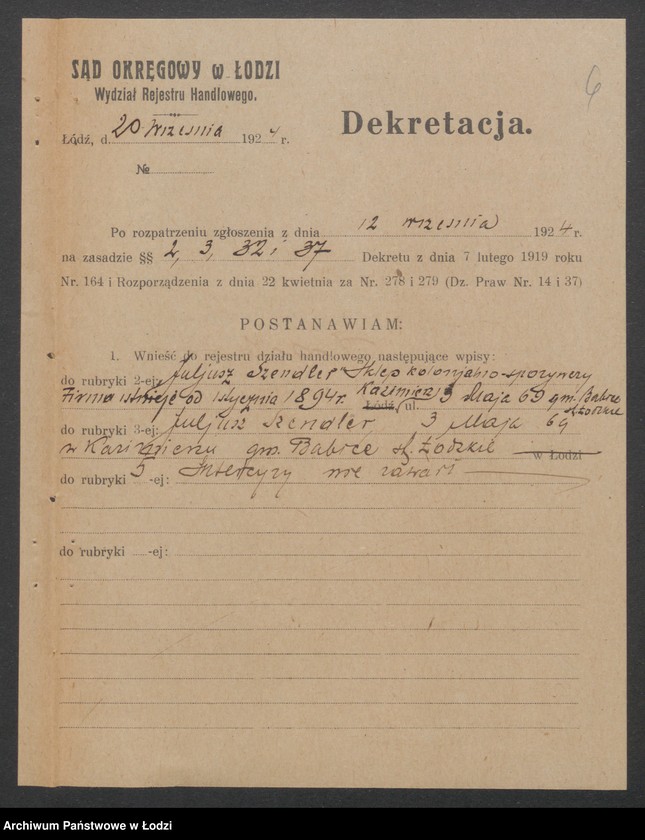 SĄD OKRĘGOWY w ŁODZI
Wydział Rejestru Handlowego.
6
Dekretacja.
Łódź, d. 20 Września 1924 r.
№
Po rozpatrzeniu zgłoszenia z dnia 12 września 1924 r.
na zasadzie §§ 2, 3, 32 i 37 Dekretu z dnia 7 lutego 1919 roku
Nr. 164 i Rozporządzenia z dnia 22 kwietnia za Nr. 278 i 279 (Dz. Praw Nr. 14 i 37)
POSTANAWIAM:
1. Wnieść do rejestru działu handlowego następujące wpisy:
do rubryki 2-ej: Juljusz Szendler Sklep kolonjalno-spożywczy
Firma istnieje od 1 stycznia 1894 r. Łódź, ul. Kazimierz 3 Maja 69 gm. Babice
st. Łódzkie
do rubryki 3-ej: Juljusz Szendler, 3 Maja 69
w Kazimierzu gm. Babice st. Łódzkie w Łodzi
do rubryki 5-ej: Intercyzy nie zawarł
do rubryki -ej:
Archiwum Państwowe w Łodzi